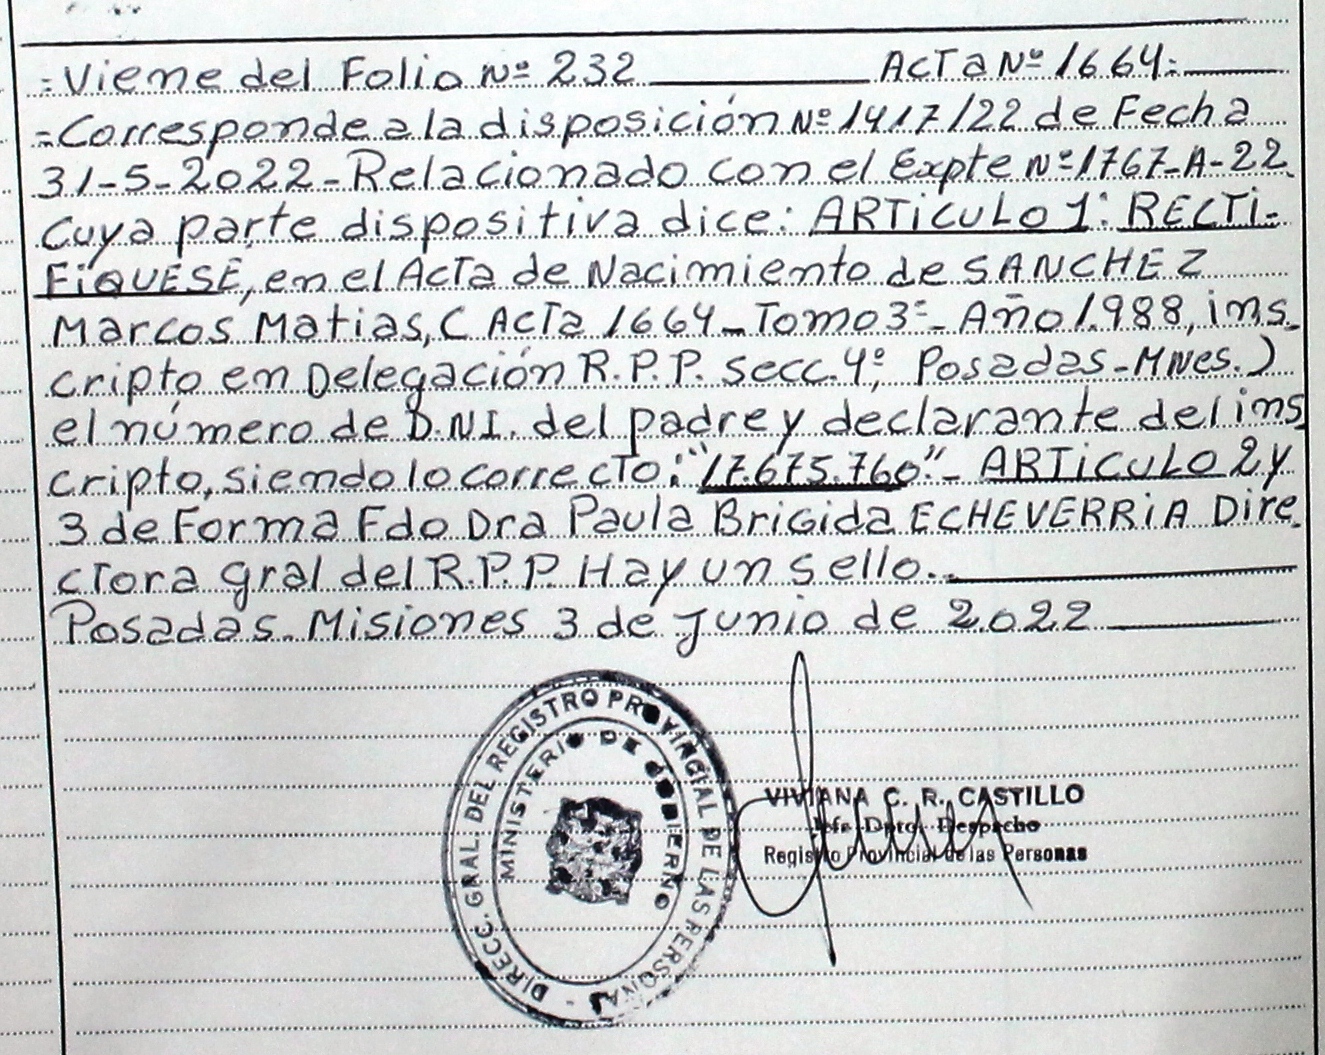 =Viene del Folio Nº 232 ACTA Nº 1664=
=Corresponde a la disposición Nº 1417/22 de Fecha
31-5-2022-Relacionado con el Expte Nº 1767-A-22
Cuya parte dispositiva dice: ARTICULO 1: RECTI-
FIQUESE, en el Acta de Nacimiento de SANCHEZ
Marcos Matias, ( Acta 1664_Tomo 3º_ Año 1.988, ins-
cripto en Delegación R.P.P. secc. 4º, Posadas-Mnes.)
el número de D.NI. del padre y declarante del ins
cripto, siendo lo correcto: "17.675.760"- ARTICULO 2 y
3 de Forma Fdo Dra Paula Brigida ECHEVERRIA Dire-
ctora gral del R.P.P. Hay un sello..
Posadas. Misiones 3 de Junio de 2.022
DIRECC. GRAL. DEL REGISTRO PROVINCIAL DE LAS PERSONAS -
MINISTERIO DE GOBIERNO
VIVIANA C. R. CASTILLO
Jefe Dpto. Despacho
Registro Provincial de las Personas